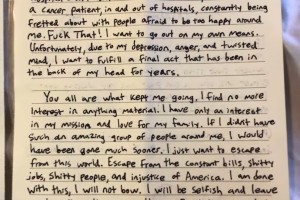 a cancer patient, in and out of hospitals, constantly being
fretted about with people afraid to be too happy around
me. Fuck That! I want to go out on my own means.
Unfortunately, due to my depression, anger, and twisted
mind, I want to fulfill a final act that has been in
the back of my head for years.
You all are what kept me going. I find no more
interest in anything material. I have only an interest
in my mission and love for my family. If I didn't have
such an amazing group of people around me, I would
have been gone much sooner. I just want to escape
from this world. Escape from the constant bills, shitty
jobs, shitty people, and injustice of America. I am done
with this, I will not bow. I will be selfish and leave